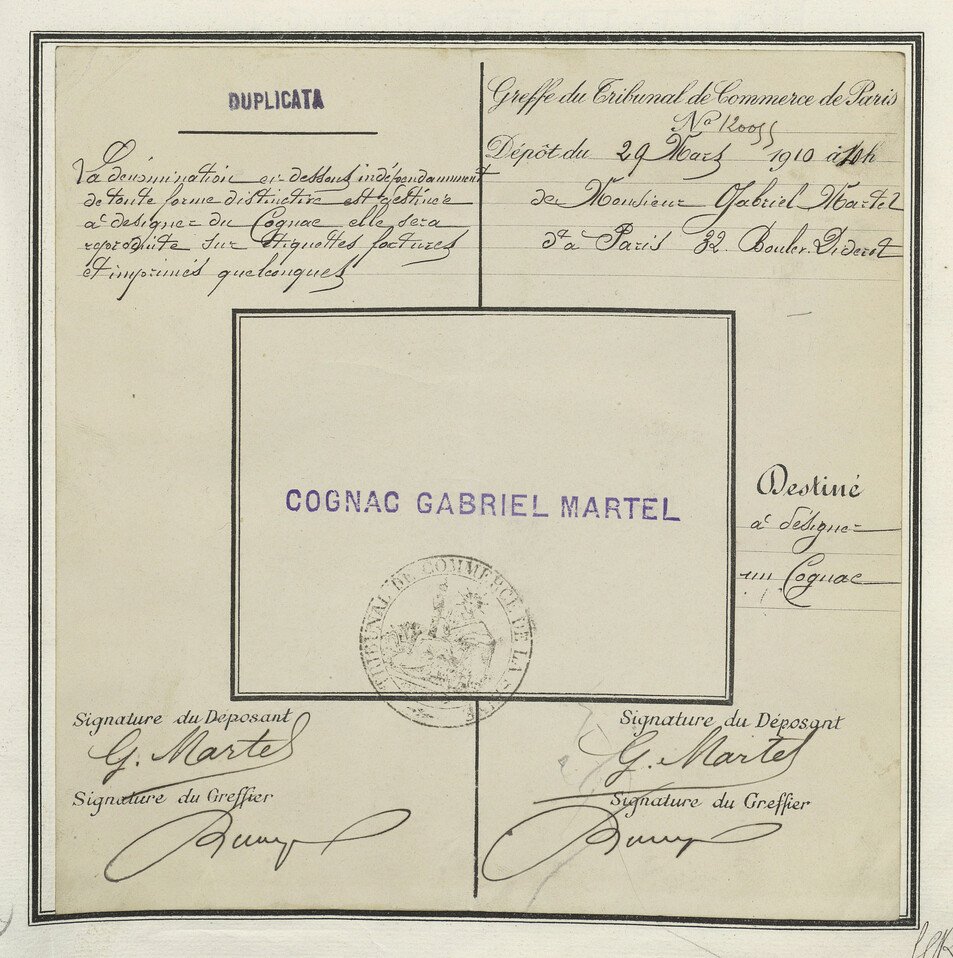 DUPLICATA
La dénomination ci-dessous indépendamment
de toute forme distinctive est destinée
à désigner du Cognac elle sera
reproduite sur étiquettes factures
et imprimés quelconques
Greffe du Tribunal de Commerce de Paris
No 120055
Dépôt du 29 Mars 1910 à 10h
de Monsieur Gabriel Martel
dt à Paris 32 Boulev. Diderot
COGNAC GABRIEL MARTEL
TRIBUNAL DE COMMERCE DE LA SEINE
Destiné
à désigner
un Cognac
Signature du Déposant
G. Martel
Signature du Greffier
Signature du Déposant
G. Martel
Signature du Greffier